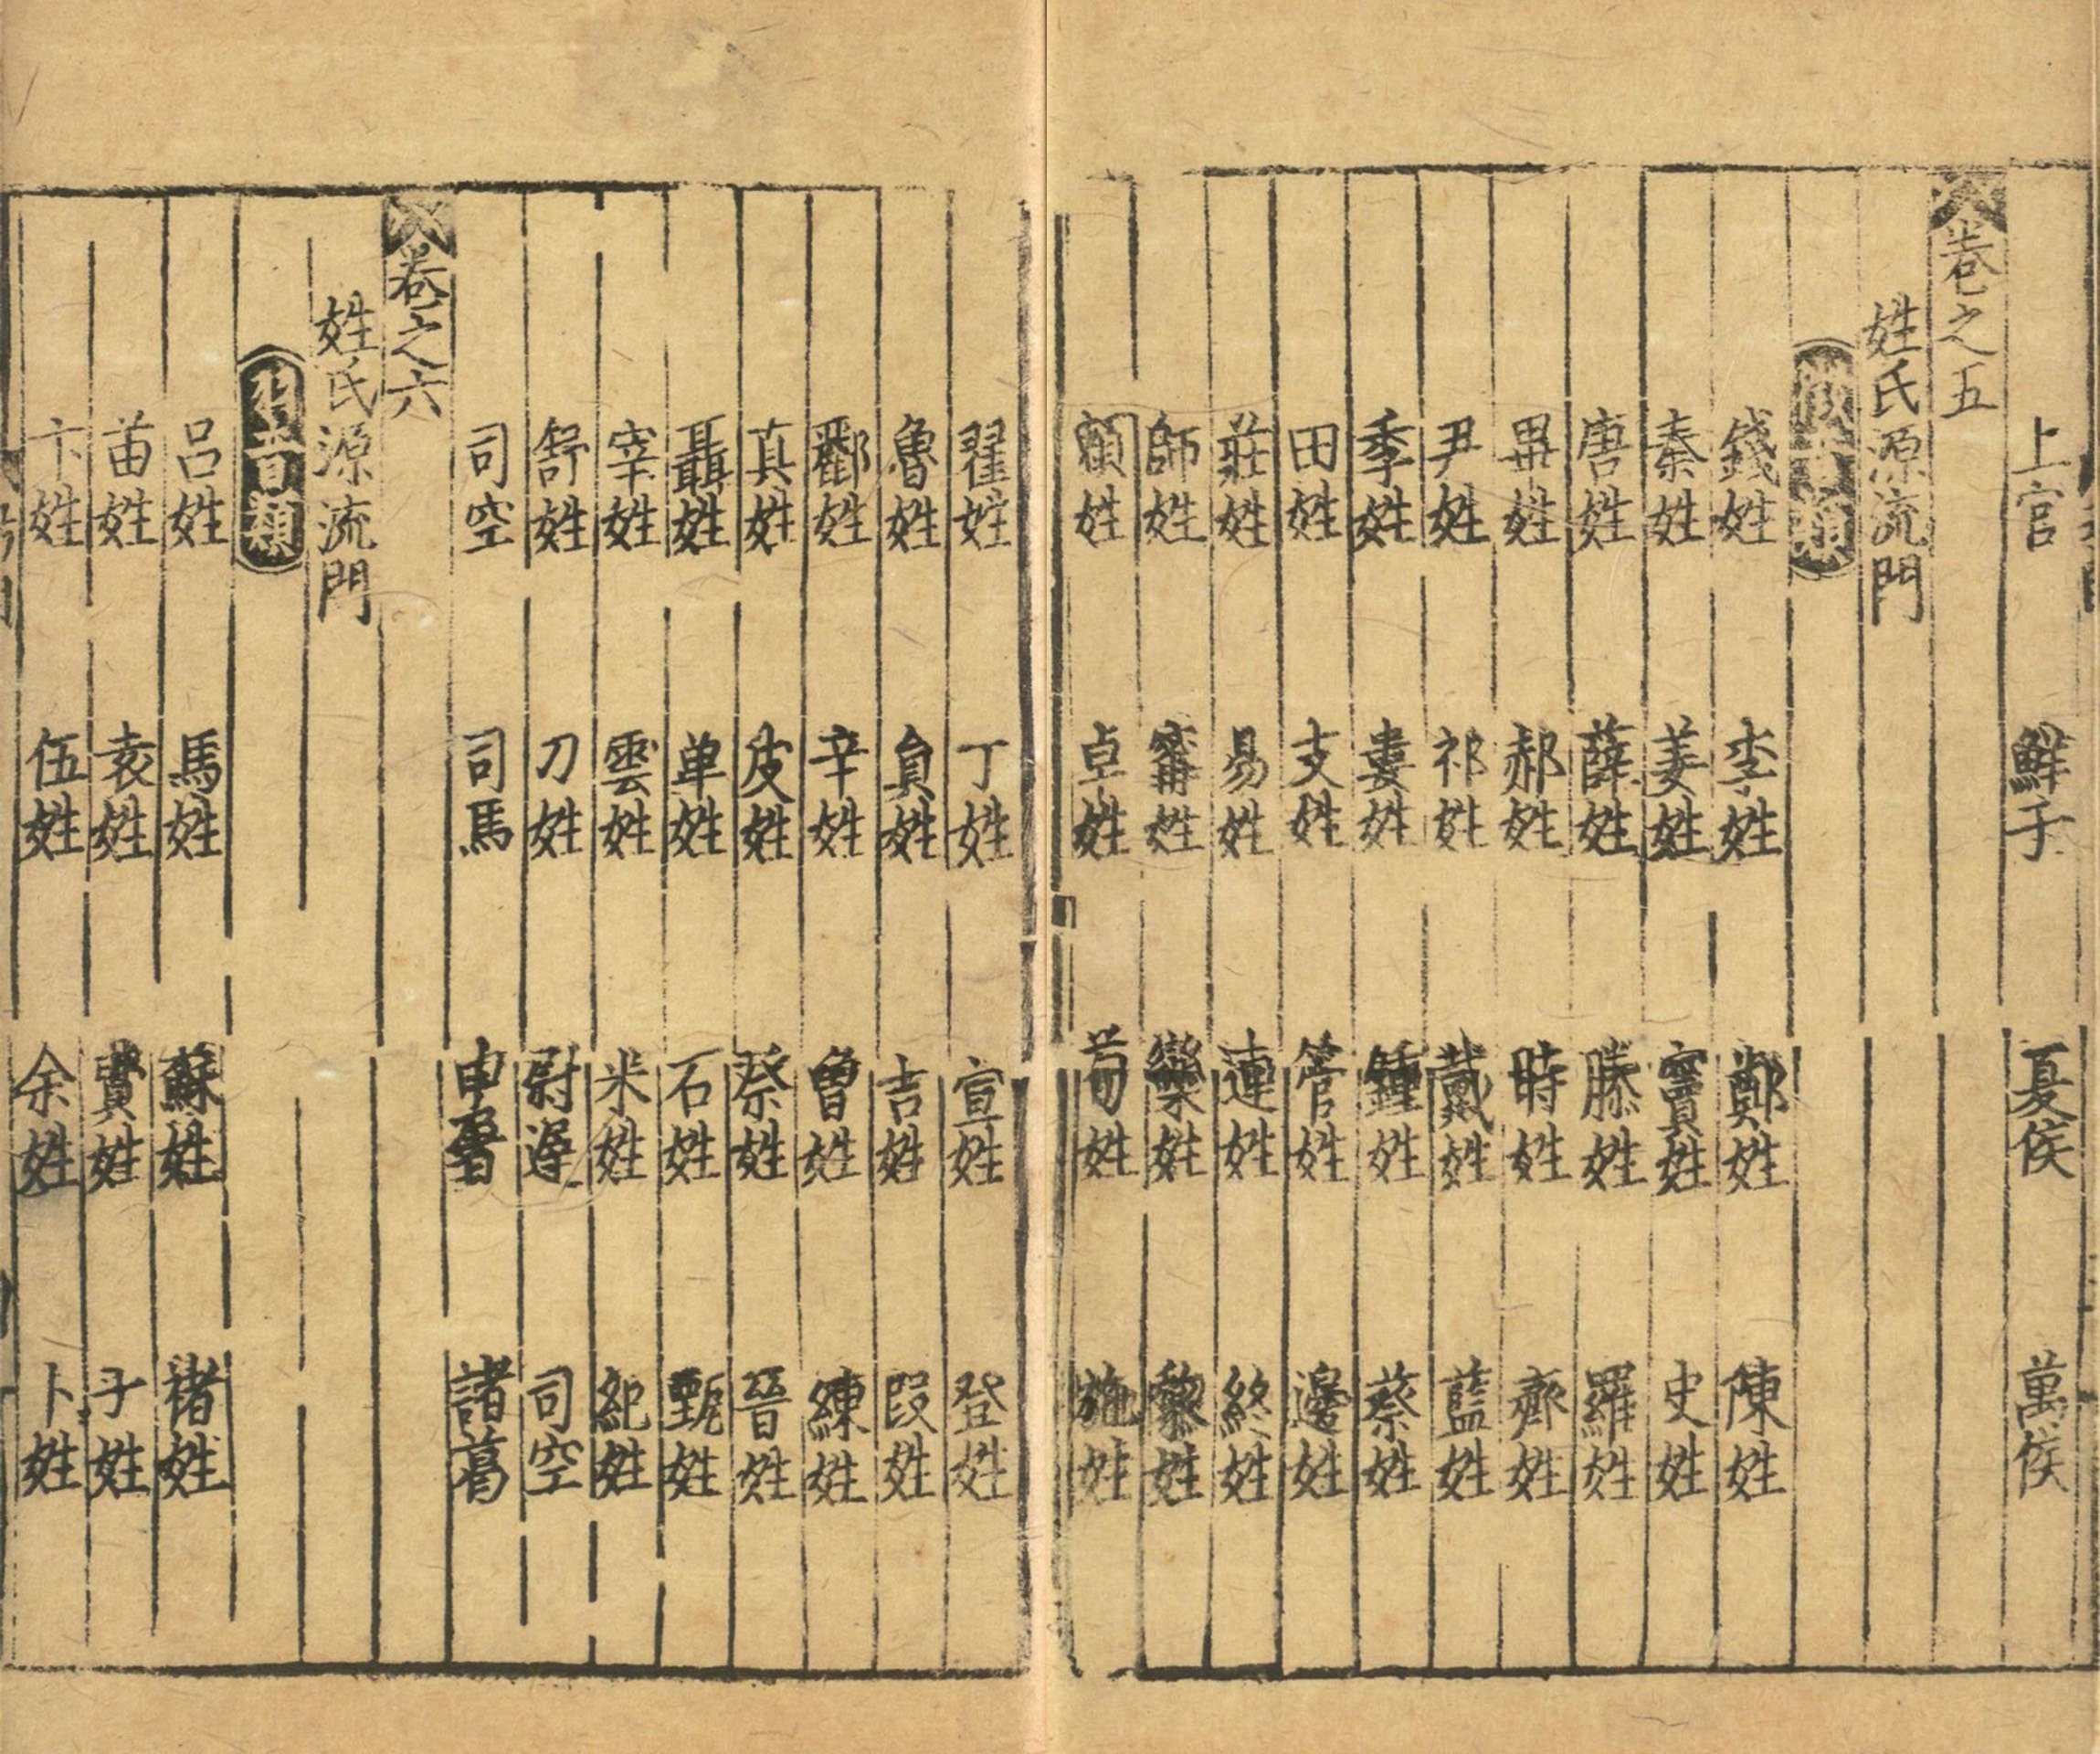 上官 鮮于 夏侯 萬俟
卷之五
姓氏源流門
徵音類
錢姓 李姓 鄭姓 陳姓
秦姓 姜姓 竇姓 史姓
唐姓 薛姓 滕姓 羅姓
畢姓 郝姓 時姓 齊姓
尹姓 祁姓 戴姓 藍姓
季姓 婁姓 鍾姓 蔡姓
田姓 支姓 管姓 邊姓
莊姓 易姓 連姓 終姓
師姓 甯姓 欒姓 黎姓
顓姓 卓姓 荀姓 施姓
翟姓 丁姓 宣姓 登姓
魯姓 員姓 吉姓 段姓
酈姓 辛姓 曾姓 練姓
真姓 皮姓 蔡姓 晉姓
聶姓 单姓 石姓 甄姓
宰姓 雲姓 米姓 紀姓
舒姓 刀姓 尉遲 司空
司空 司馬 申屠 諸葛
卷之六
姓氏源流門
羽音類
呂姓 馬姓 蘇姓 褚姓
苗姓 袁姓 費姓 于姓
卞姓 伍姓 余姓 卜姓